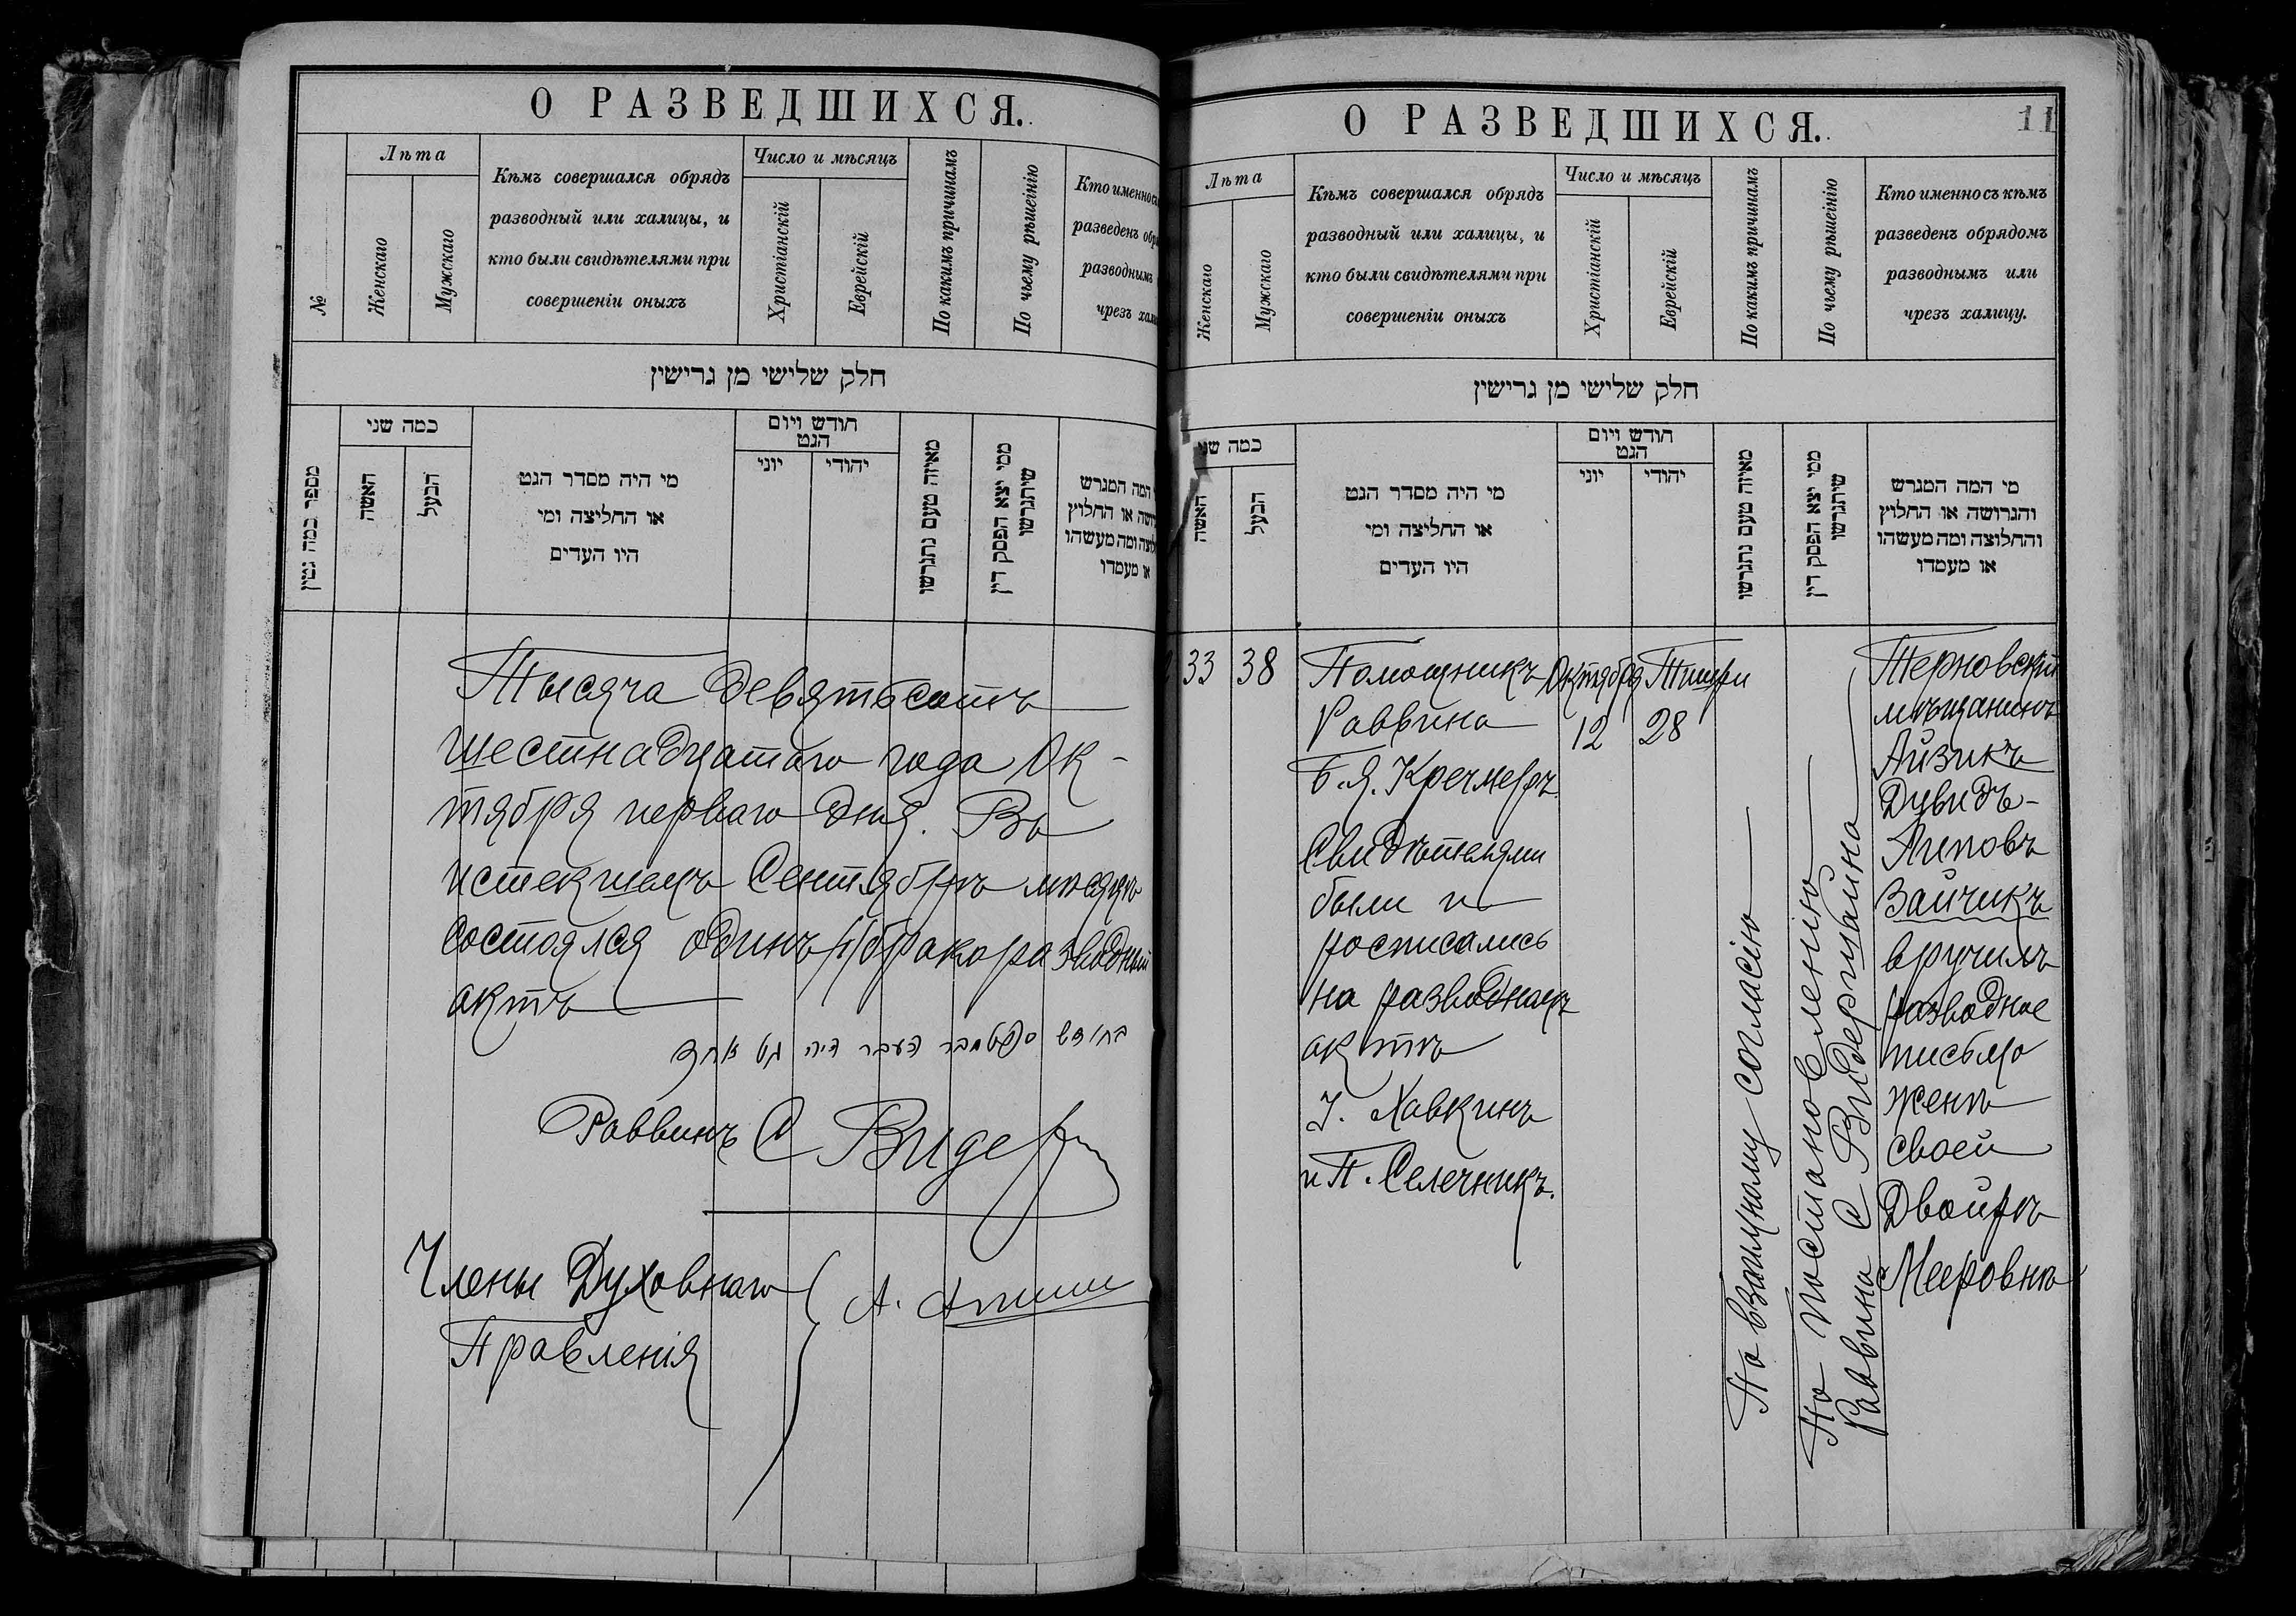 О РАЗВЕДШИХСЯ.
№
Лѣта
Женскаго
Мужскаго
Кѣмъ совершался обрядъ
разводный или халицы, и
кто были свидѣтелями при
совершеніи оныхъ
Число и мѣсяцъ
Христіанскій
Еврейскій
По какимъ причинамъ
По чьему рѣшеінію
Кто именно съ
разведенъ обр
разводнымъ
чрезъ хали
חלק שלישי מן גרישין
מספר כמה גטין
כמה שני
האשה
הבעל
מי היה מסדר הגט
או החליצה ומי
היו העדים
חודש ויום
הגט
יוני
יהודי
מאיזה טעם נתגרשו
ממי יצא הפסק דין
שיתגרשו
המה המגרש
ושה או החלוץ
לוצה ומה מעשהו
או מעמדו
Тысяча девятьсотъ
шестнадцатаго года Ок-
тября перваго дня. Въ
истекшемъ Сентябрѣ мѣсяцѣ
состоялся одинъ /1/ бракоразводный
актъ
בחודש סעפטמבר העבר היה גט אחד
Раввинъ С Видер
Члены Духовнаго
Правленія
А.
О РАЗВЕДШИХСЯ.
11
Лѣта
Женскаго
Мужскаго
Кѣмъ совершался обрядъ
разводный или халицы, и
кто были свидѣтелями при
совершеніи оныхъ
Число и мѣсяцъ
Христіанскій
Еврейскій
По какимъ причинамъ
По чьему рѣшеінію
Кто именно съ кѣмъ
разведенъ обрядомъ
разводнымъ или
чрезъ халицу.
חלק שלישי מן גרישין
כמה שני
האשה
הבעל
מי היה מסדר הגט
או החליצה ומי
היו העדים
חודש ויום
הגט
יוני
יהודי
מאיזה טעם נתגרשו
ממי יצא הפסק דין
שיתגרשו
מי המה המגרש
והגרושה או החלוץ
והחלוצה ומה מעשהו
או מעמדו
33
38
Помощникъ
Раввина
Б. Я. Кречмеръ.
Свидѣтелями
были и
росписались
на разводномъ
актѣ
І. Хавкинъ
и П. Селечникъ.
Октября
12
Тишри
28
По взаимному согласію
По постановленію
Раввина С Видершайна
Терновскій
мѣщанинъ
Айзикъ
Дувидъ-
Липовъ
Зайчикъ
вручилъ
разводное
письмо
женѣ
своей
Двойрѣ
Мееровнѣ